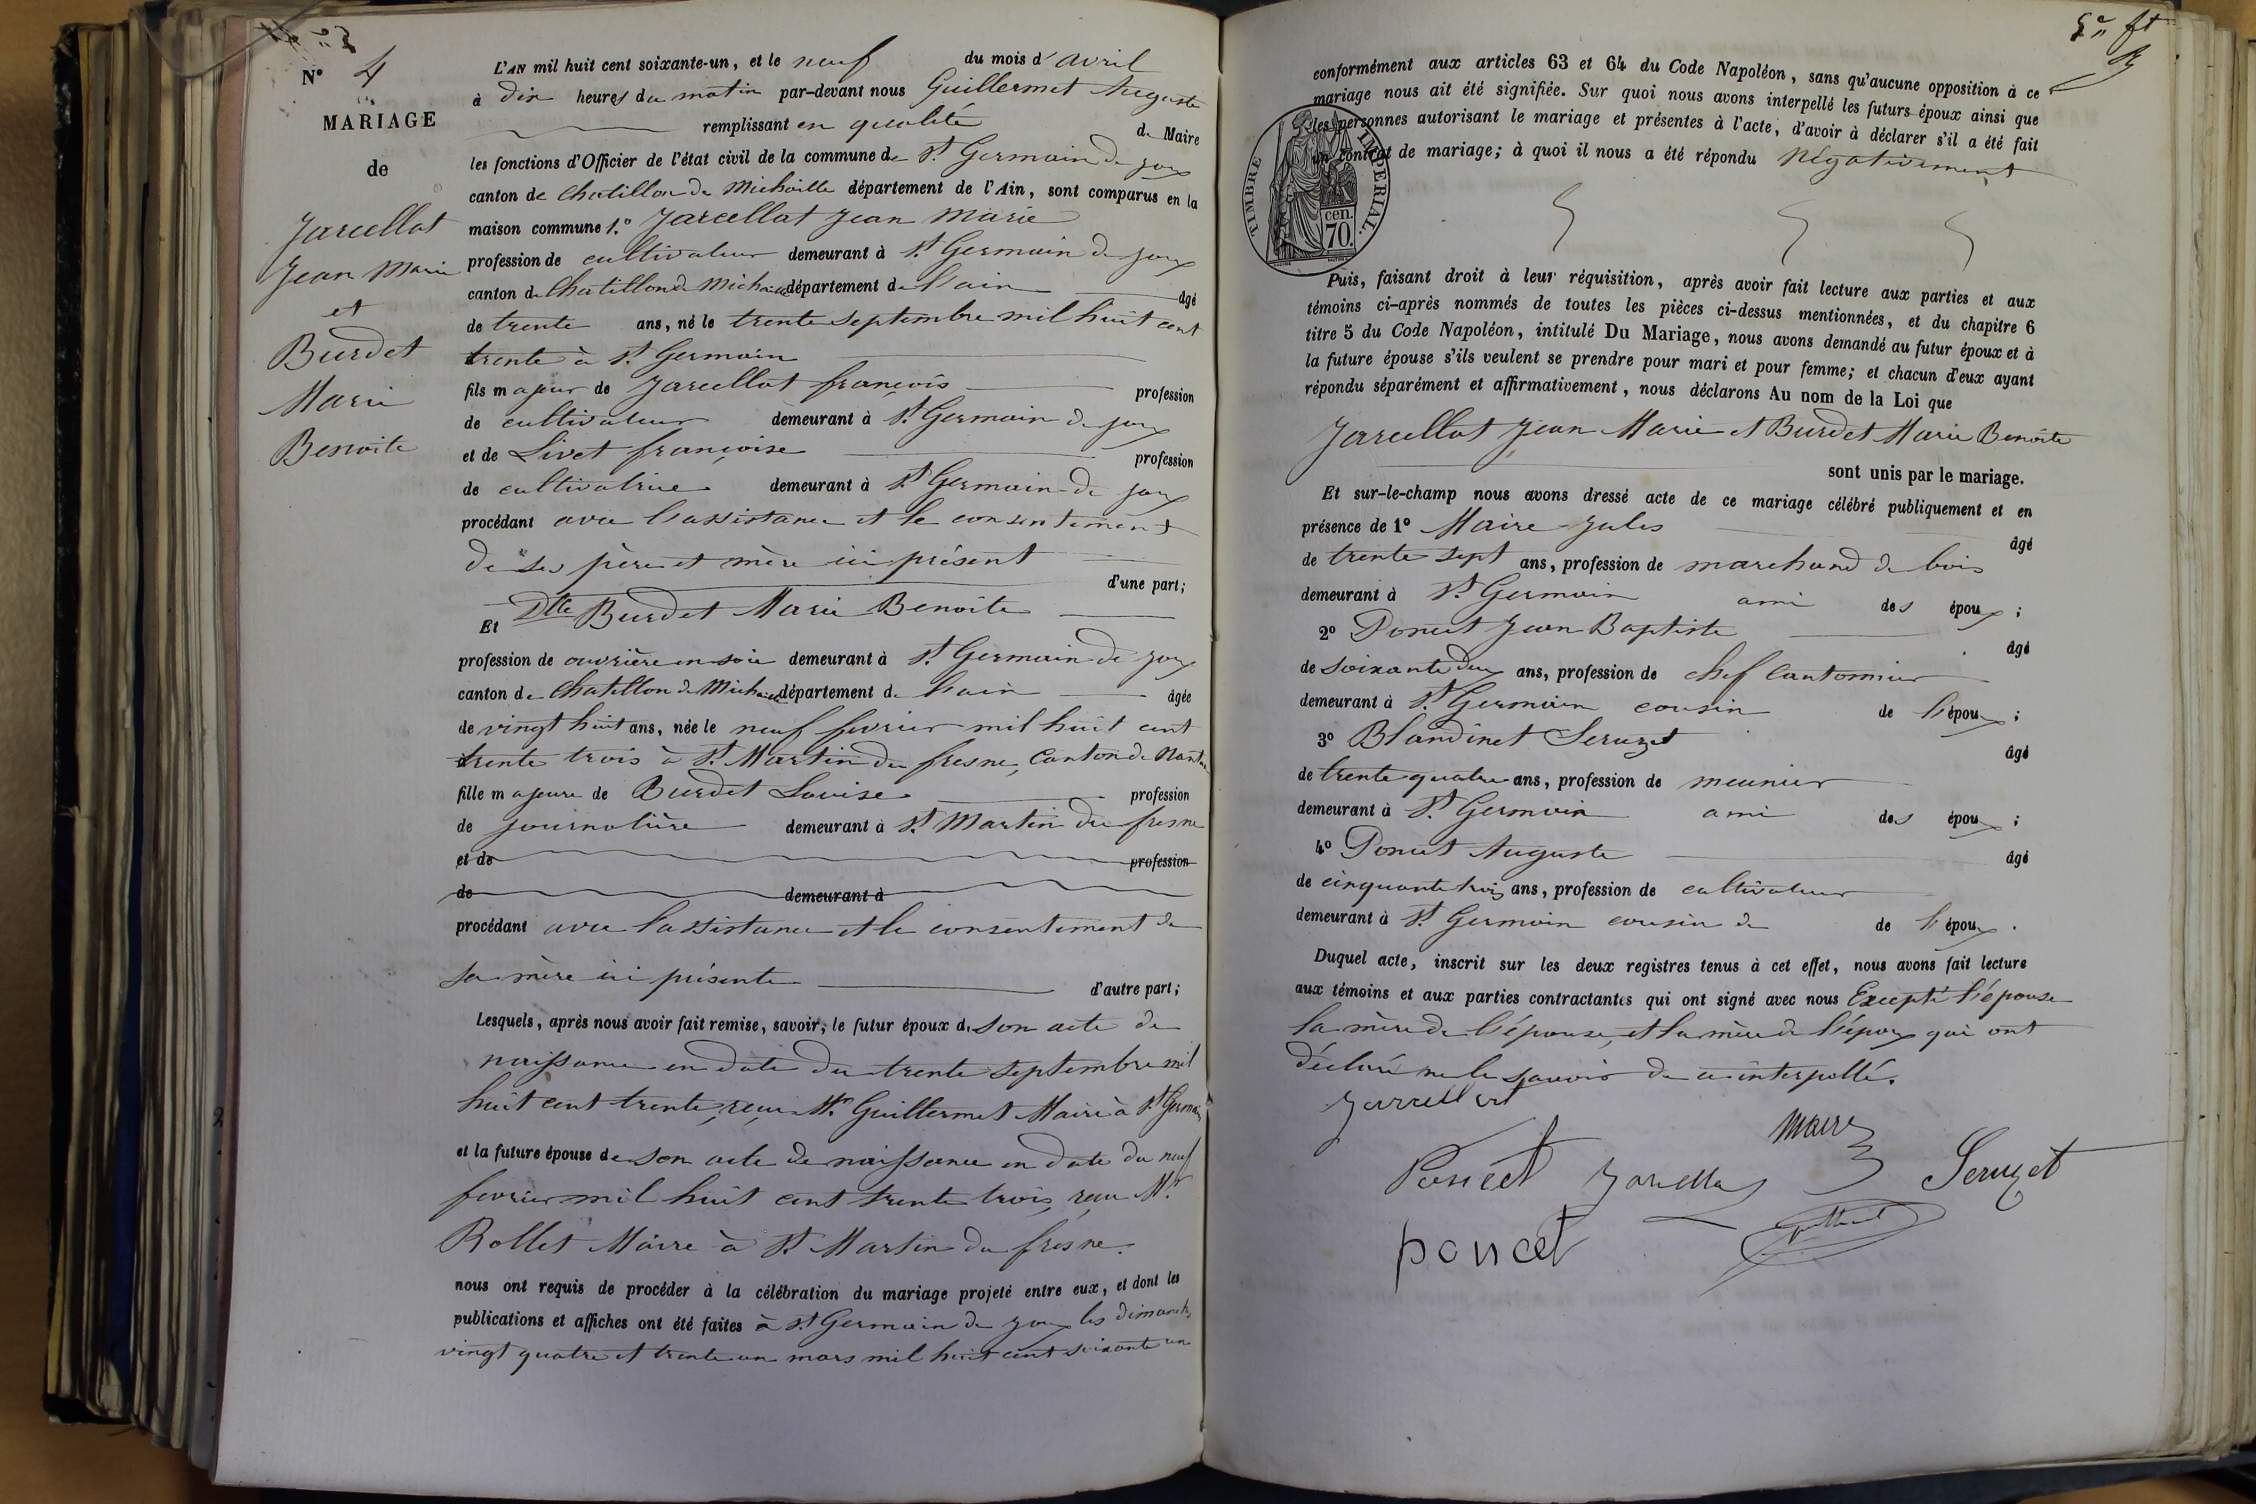 N° 4
MARIAGE
de
Jarcellat
Jean Marie
et
Burdet
Marie
Benoite
L'AN mil huit cent soixante-un, et le neuf du mois d' avril
à dix heures du matin par-devant nous Guillermet Auguste
remplissant en qualité de Maire
les fonctions d'Officier de l'état civil de la commune de St Germain de joux
canton de Chatillon de Michaille département de l'Ain, sont comparus en la
maison commune 1.° Jarcellat Jean Marie
profession de cultivateur demeurant à St Germain de joux
canton de Chatillon de Michaille département de l'ain âgé
de trente ans, né le trente septembre mil huit cent
trente à St Germain
fils majeur de Jarcellat françois profession
de cultivateur demeurant à St Germain de joux
et de Livet françoise profession
de cultivatrice demeurant à St Germain de joux
procédant avec l'assistance et le consentement
de ses père et mère ici présent
d'une part;
Et Dlle Burdet Marie Benoite
profession de ouvrière en soie demeurant à St Germain de joux
canton de Chatillon de Michaille département de l'ain âgée
de vingt huit ans, née le neuf fevrier mil huit cent
trente trois à St Martin du fresne, Canton de Nantua
fille majeure de Burdet Louise profession
de journalière demeurant à St Martin du fresne
et de profession
de demeurant à
procédant avec l'assistance et le consentement de
sa mère ici présente d'autre part;
Lesquels, après nous avoir fait remise, savoir, le futur époux de son acte de
naissance en date du trente septembre mil
huit cent trente, reçu Mr Guillermet Maire à St Germain
et la future épouse de son acte de naissance en date du neuf
fevrier mil huit cent trente trois, reçu Mr
Rollet Maire à St Martin du fresne.
nous ont requis de procéder à la célébration du mariage projeté entre eux, et dont les
publications et affiches ont été faites à St Germain de joux les dimanches
vingt quatre et trente un mars mil huit cent soixante un
conformément aux articles 63 et 64 du Code Napoléon, sans qu'aucune opposition à ce
mariage nous ait été signifiée. Sur quoi nous avons interpellé les futurs époux ainsi que
les personnes autorisant le mariage et présentes à l'acte, d'avoir à déclarer s'il a été fait
un contrat de mariage; à quoi il nous a été répondu négativement
TIMBRE IMPERIAL.
cen.
70.
Puis, faisant droit à leur réquisition, après avoir fait lecture aux parties et aux
témoins ci-après nommés de toutes les pièces ci-dessus mentionnées, et du chapitre 6
titre 5 du Code Napoléon, intitulé Du Mariage, nous avons demandé au futur époux et à
la future épouse s'ils veulent se prendre pour mari et pour femme; et chacun d'eux ayant
répondu séparément et affirmativement, nous déclarons Au nom de la Loi que
Jarcellat Jean Marie et Burdet Marie Benoite
sont unis par le mariage.
Et sur-le-champ nous avons dressé acte de ce mariage célébré publiquement et en
présence de 1° Maire Jules âgé
de trente sept ans, profession de marchand de bois
demeurant à St Germain ami des époux;
2° Poncet Jean Baptiste âgé
de soixante deux ans, profession de chef Cantonnier
demeurant à St Germain cousin de l'époux;
3° Blandinet Seruzet âgé
de trente quatre ans, profession de meunier
demeurant à St Germain ami des époux;
4° Poncet Auguste âgé
de cinquante trois ans, profession de cultivateur
demeurant à St Germain cousin de de l'époux.
Duquel acte, inscrit sur les deux registres tenus à cet effet, nous avons fait lecture
aux témoins et aux parties contractantes qui ont signé avec nous Excepté l'épouse
la mère de l'épouse, et la mère de l'époux qui ont
déclaré ne le savoir de ce interpellé.
Maire
Poncet Seruzet
poncet